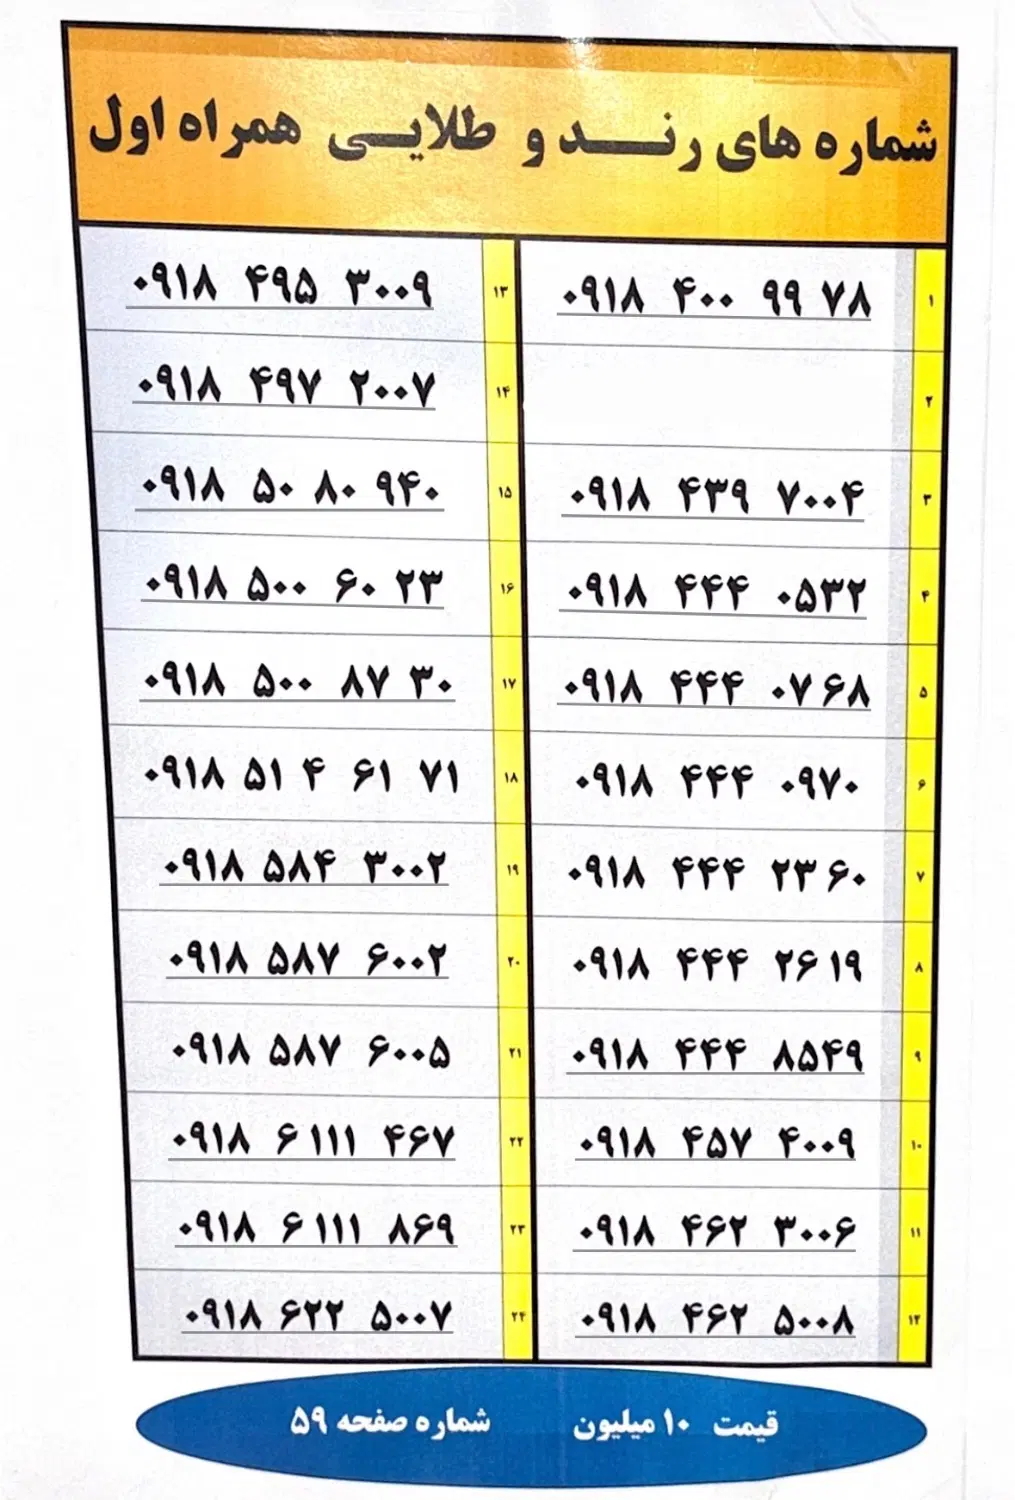 شماره های رنـــد و طلایـی همراه اول
۱ ۰۹۱۸ ۴۰۰ ۹۹ ۷۸
۲
۳ ۰۹۱۸ ۴۳۹ ۷۰۰۴
۴ ۰۹۱۸ ۴۴۴ ۰۵۳۲
۵ ۰۹۱۸ ۴۴۴ ۰۷ ۶۸
۶ ۰۹۱۸ ۴۴۴ ۰۹۷۰
۷ ۰۹۱۸ ۴۴۴ ۲۳ ۶۰
۸ ۰۹۱۸ ۴۴۴ ۲۶ ۱۹
۹ ۰۹۱۸ ۴۴۴ ۸۵۴۹
۱۰ ۰۹۱۸ ۴۵۷ ۴۰۰۹
۱۱ ۰۹۱۸ ۴۶۲ ۳۰۰۶
۱۲ ۰۹۱۸ ۴۶۲ ۵۰۰۸
۱۳ ۰۹۱۸ ۴۹۵ ۳۰۰۹
۱۴ ۰۹۱۸ ۴۹۷ ۲۰۰۷
۱۵ ۰۹۱۸ ۵۰ ۸۰ ۹۴۰
۱۶ ۰۹۱۸ ۵۰۰ ۶۰ ۲۳
۱۷ ۰۹۱۸ ۵۰۰ ۸۷ ۳۰
۱۸ ۰۹۱۸ ۵۱ ۴ ۶۱ ۷۱
۱۹ ۰۹۱۸ ۵۸۴ ۳۰۰۲
۲۰ ۰۹۱۸ ۵۸۷ ۶۰۰۲
۲۱ ۰۹۱۸ ۵۸۷ ۶۰۰۵
۲۲ ۰۹۱۸ ۶ ۱۱۱ ۴۶۷
۲۳ ۰۹۱۸ ۶ ۱۱۱ ۸۶۹
۲۴ ۰۹۱۸ ۶۲۲ ۵۰۰۷
قیمت ۱۰ میلیون شماره صفحه ۵۹